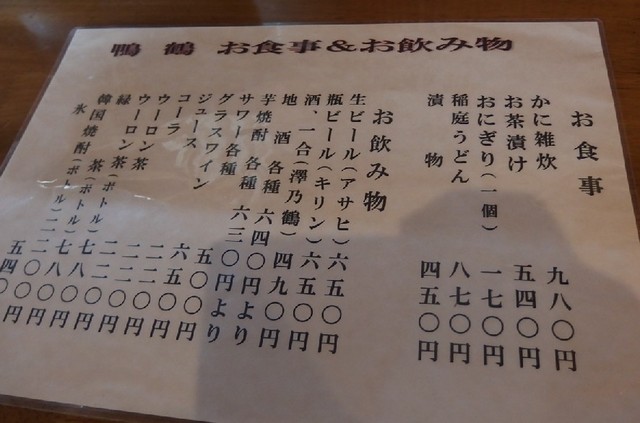 鴨 鶴 お食事＆お飲み物
お食事
かに雑炊 九八〇円
お茶漬け 五四〇円
おにぎり(一個) 一七〇円
稲庭うどん 八七〇円
漬物 四五〇円
お飲み物
生ビール(アサヒ) 六五〇円
瓶ビール(キリン) 六五〇円
酒、一合(澤乃鶴) 四九〇円
地酒 各種
芋焼酎 各種 六四〇円より
サワー各種 六三〇円より
グラスワイン 五〇〇円
ジュース
コーラ
ウーロン茶
ウーロン茶(ボトル)
緑茶(ボトル)
韓国焼酎(ボトル)
氷